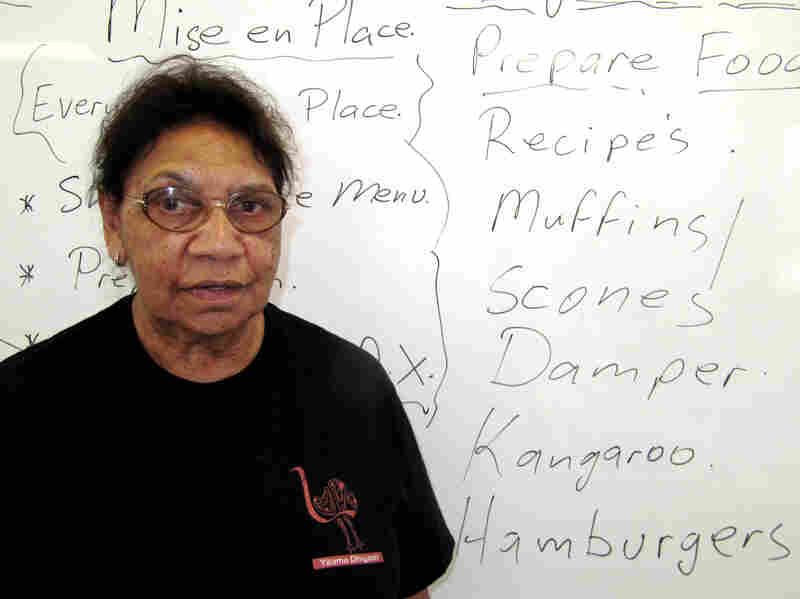 Mise en Place.
Every Place.
* Menu.
*
X.
Prepare Food
Recipe's.
Muffins/
Scones
Damper.
Kangaroo.
Hamburgers
Yaama Dhiyaan